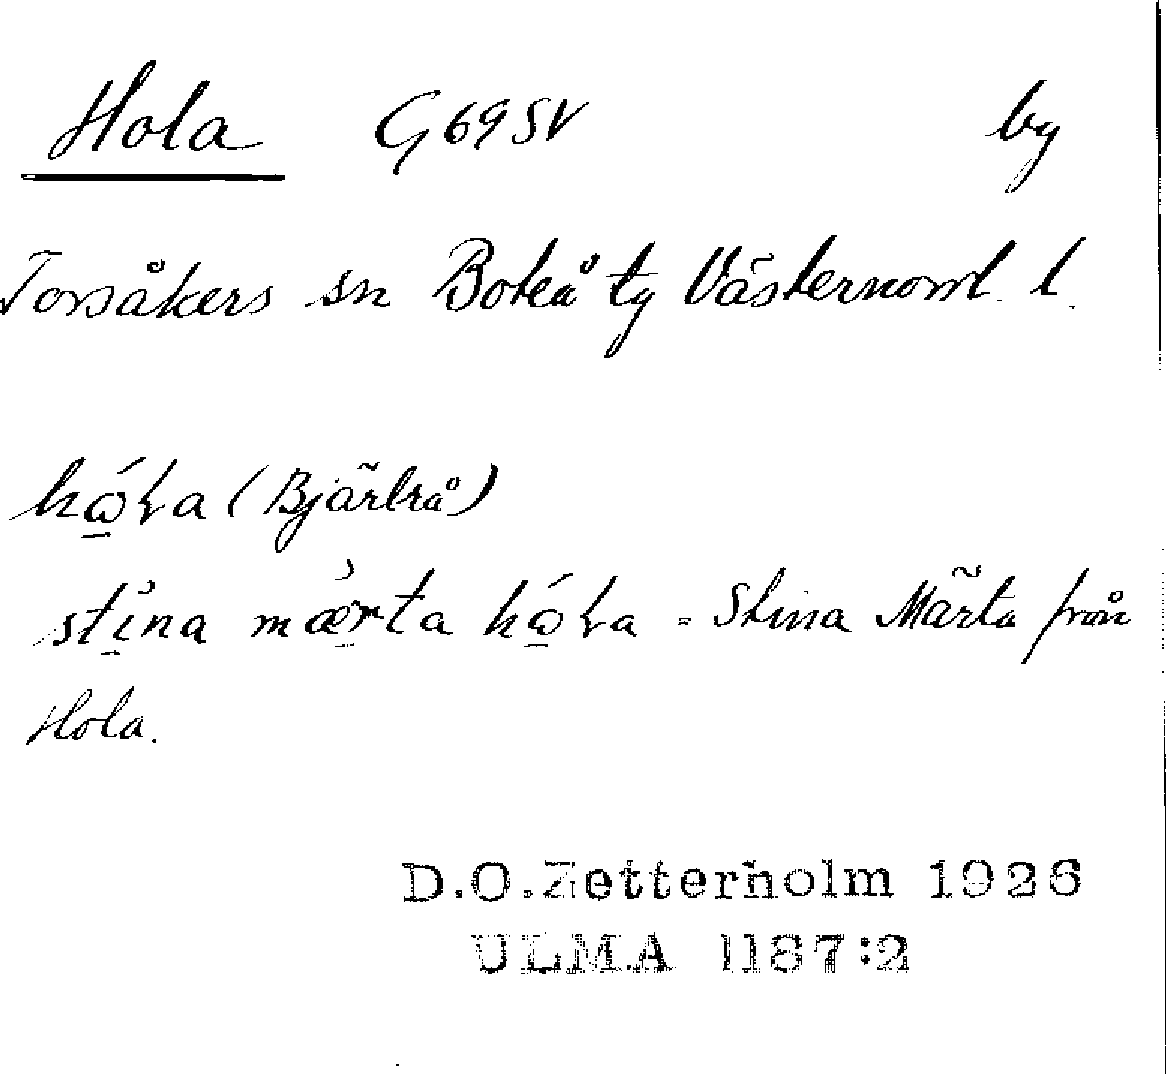 Hola G69SV by
Torsåkers sn Boteå tg Västernorrl. l.
hώɫa (Bjärtrå)
stína mǽrta hώɫa = Stina Märta från
Hola.
D.O.Zetterholm 1926
ULMA 1187:2